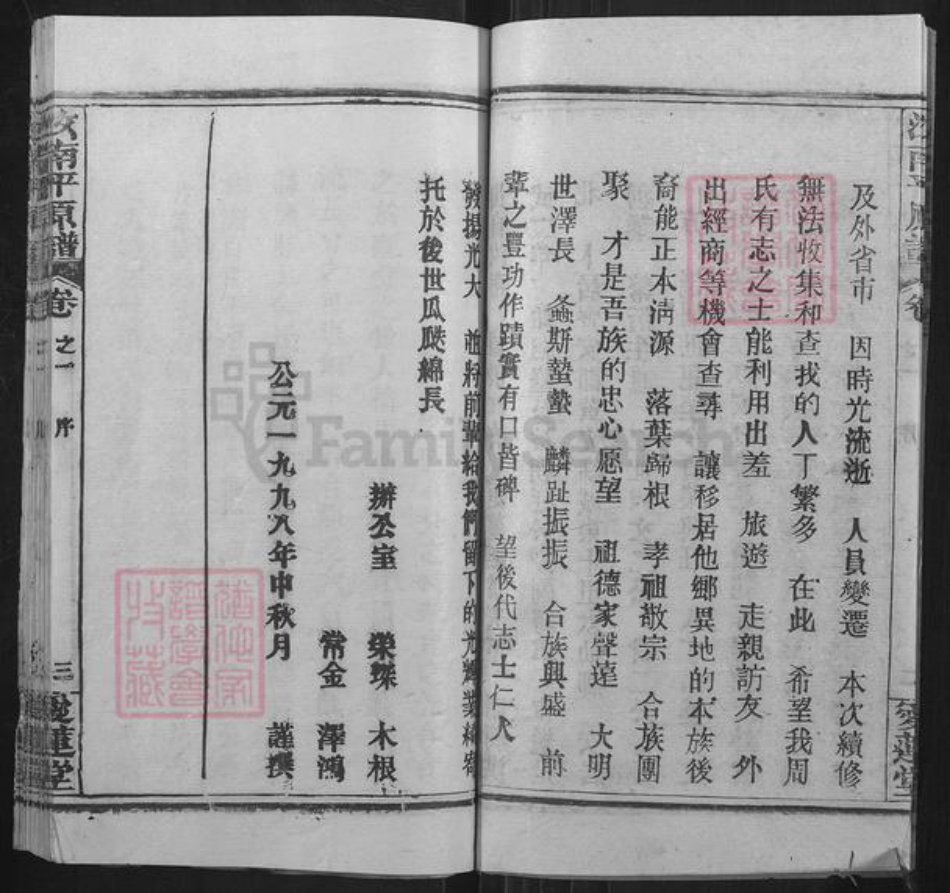 及外省市 因時光流逝 人員變遷 本次續修
無法收集和查找的人丁繁多 在此 希望我周
氏有志之士能利用出差 旅遊 走親訪友 外
出經商等機會查尋 讓移居他鄉異地的本族後
裔能正本淸源 落葉歸根 孝祖敬宗 合族團
聚 才是吾族的忠心愿望 祖德家聲遠 大明
世澤長 螽斯蟄蟄 麟趾振振 合族興盛 前
輩之豐功作蹟實有口皆碑 望後代志士仁人
發揚光大 並將前輩給我們留下的光輝
托於後世瓜瓞綿長
辦公室 榮琛 木根
常金 澤鴻
公元一九九八年中秋月 謹撰
汝南平原譜 卷之一 序 三 愛蓮堂
愛蓮堂
FamilySearch